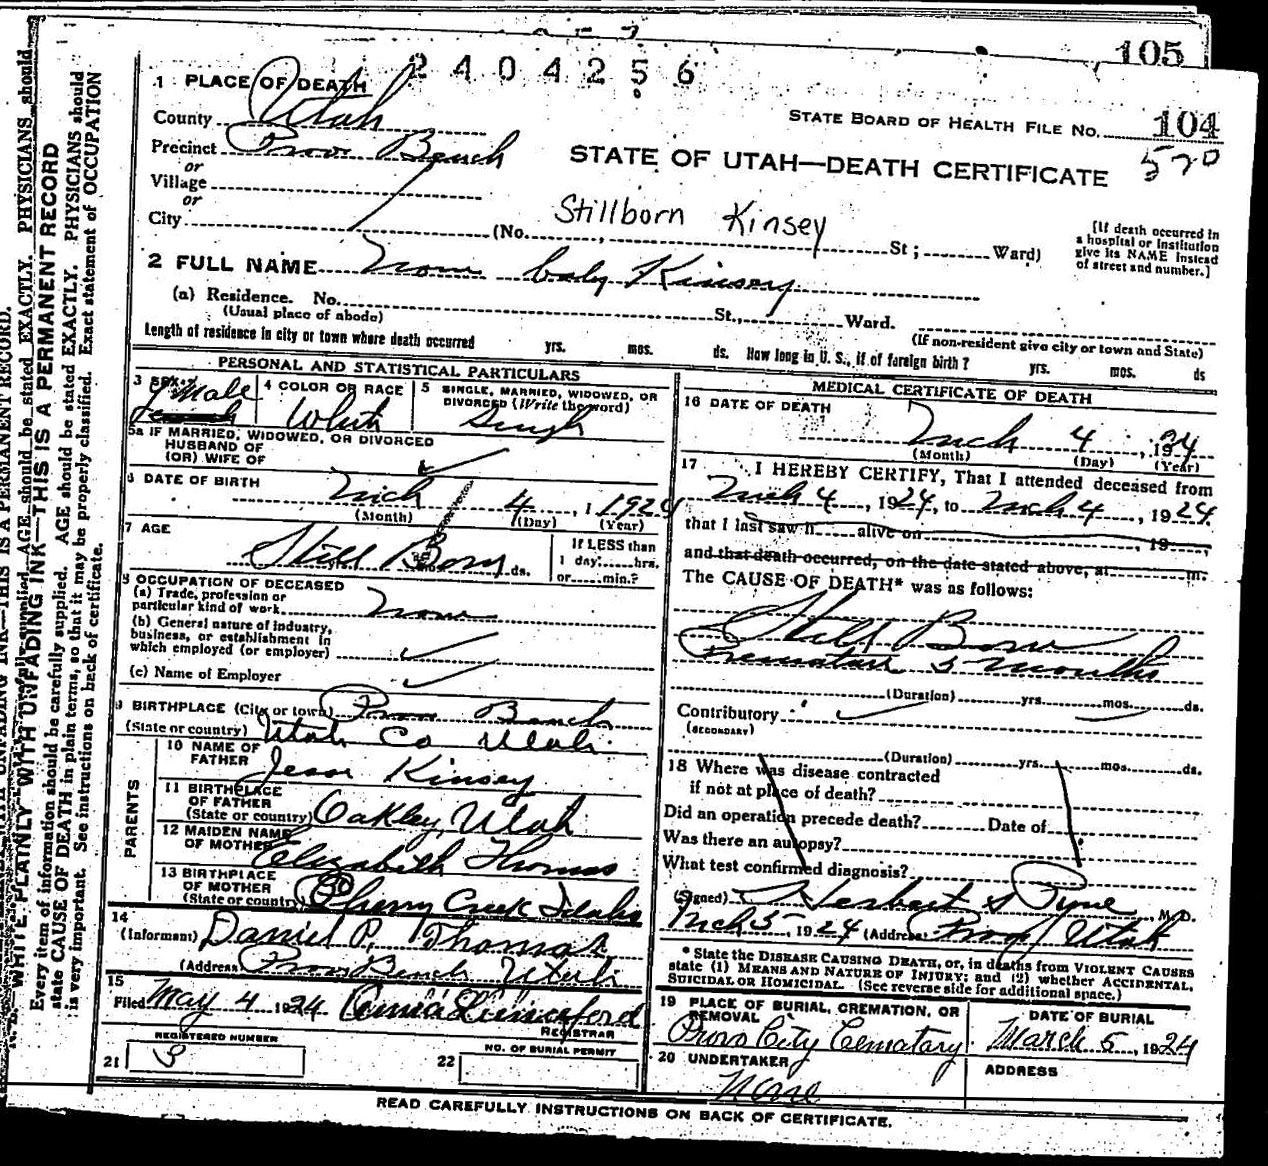 105
2404256
1 PLACE OF DEATH
STATE BOARD OF HEALTH FILE NO. 104
County Utah
Precinct Provo Bench
STATE OF UTAH—DEATH CERTIFICATE 570
or
Village
or
City
Stillborn Kinsey
(No. St; Ward)
[If death occurred in
a hospital or institution
give its NAME instead
of street and number.]
2 FULL NAME None baby Kinsey
(a) Residence. No. St., Ward.
(Usual place of abode)
(If non-resident give city or town and State)
Length of residence in city or town where death occurred yrs. mos. ds. How long in U. S., if of foreign birth? yrs. mos. ds
PERSONAL AND STATISTICAL PARTICULARS
3 SEX Male
4 COLOR OR RACE White
5 SINGLE, MARRIED, WIDOWED, OR
DIVORCED (Write the word) Single
5a IF MARRIED, WIDOWED, OR DIVORCED
HUSBAND OF
(OR) WIFE OF
6 DATE OF BIRTH
Mch 4, 1924
(Month) (Day) (Year)
7 AGE
Still Born ds.
If LESS than
1 day hrs.
or min.?
8 OCCUPATION OF DECEASED
(a) Trade, profession or
particular kind of work None
(b) General nature of industry,
business, or establishment in
which employed (or employer)
(c) Name of Employer
9 BIRTHPLACE (City or town) Provo Bench
(State or country) Utah Co Utah
PARENTS
10 NAME OF
FATHER Jesse Kinsey
11 BIRTHPLACE
OF FATHER
(State or country) Oakley, Utah
12 MAIDEN NAME
OF MOTHER Elizabeth Thomas
13 BIRTHPLACE
OF MOTHER
(State or country) Cherry Creek Idaho
14
(Informant) Daniel P. Thomas
(Address Provo Bench Utah
15
Filed May 4 1924
REGISTRAR
REGISTERED NUMBER
21 3
NO. OF BURIAL PERMIT
22
MEDICAL CERTIFICATE OF DEATH
16 DATE OF DEATH
Mch 4, 1924
(Month) (Day) (Year)
17 I HEREBY CERTIFY, That I attended deceased from
Mch 4, 1924, to Mch 4, 1924.
that I last saw h alive on , 19
and that death occurred, on the date stated above, at m.
The CAUSE OF DEATH* was as follows:
Still Born
Premature 5 months
(Duration) yrs. mos. ds.
Contributory
(SECONDARY)
(Duration) yrs. mos. ds.
18 Where was disease contracted
if not at place of death?
Did an operation precede death? Date of
Was there an autopsy?
What test confirmed diagnosis?
(Signed) Herbert S Pyne, M. D.
Mch 5, 1924 (Address Provo, Utah
*State the DISEASE CAUSING DEATH, or, in deaths from VIOLENT CAUSES
state (1) MEANS AND NATURE OF INJURY; and (2) whether ACCIDENTAL,
SUICIDAL OR HOMICIDAL. (See reverse side for additional space.)
19 PLACE OF BURIAL, CREMATION, OR
REMOVAL
Provo City Cematary
DATE OF BURIAL
March 5, 1924
20 UNDERTAKER
None
ADDRESS
READ CAREFULLY INSTRUCTIONS ON BACK OF CERTIFICATE.
WRITE PLAINLY WITH UNFADING INK—THIS IS A PERMANENT RECORD
Every item of information should be carefully supplied. AGE should be stated EXACTLY. PHYSICIANS should
state CAUSE OF DEATH in plain terms, so that it may be properly classified. Exact statement of OCCUPATION
is very important. See instructions on back of certificate.